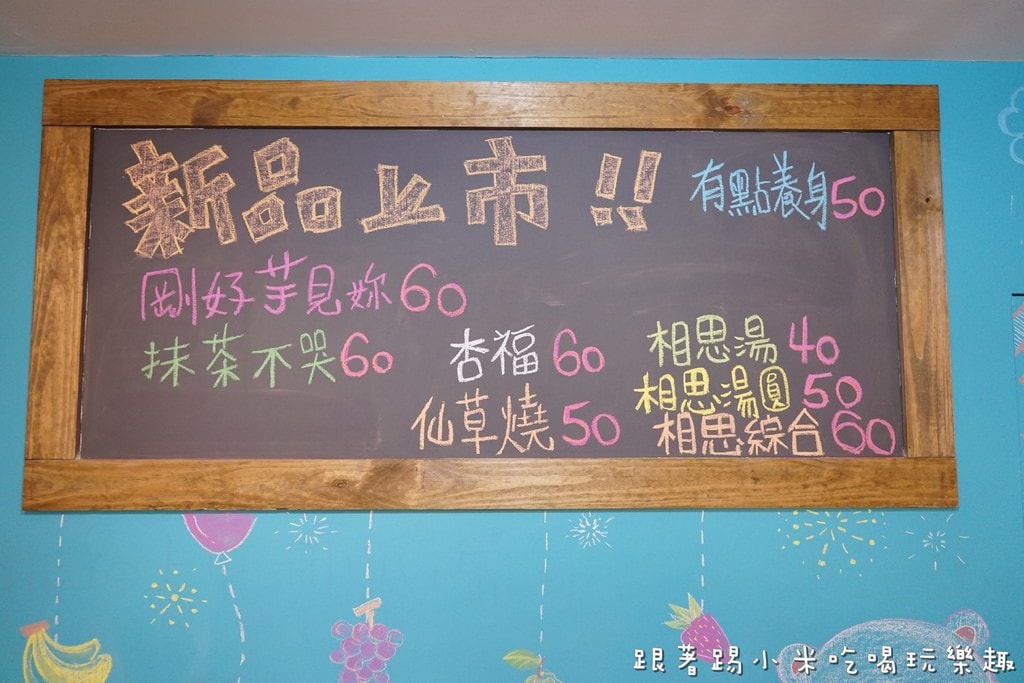 新品上市!!
有點養身50
剛好芋見妳60
抹茶不哭60
杏福60
相思湯40
相思湯圓50
仙草燒50
相思綜合60
跟著踢小米吃喝玩樂趣